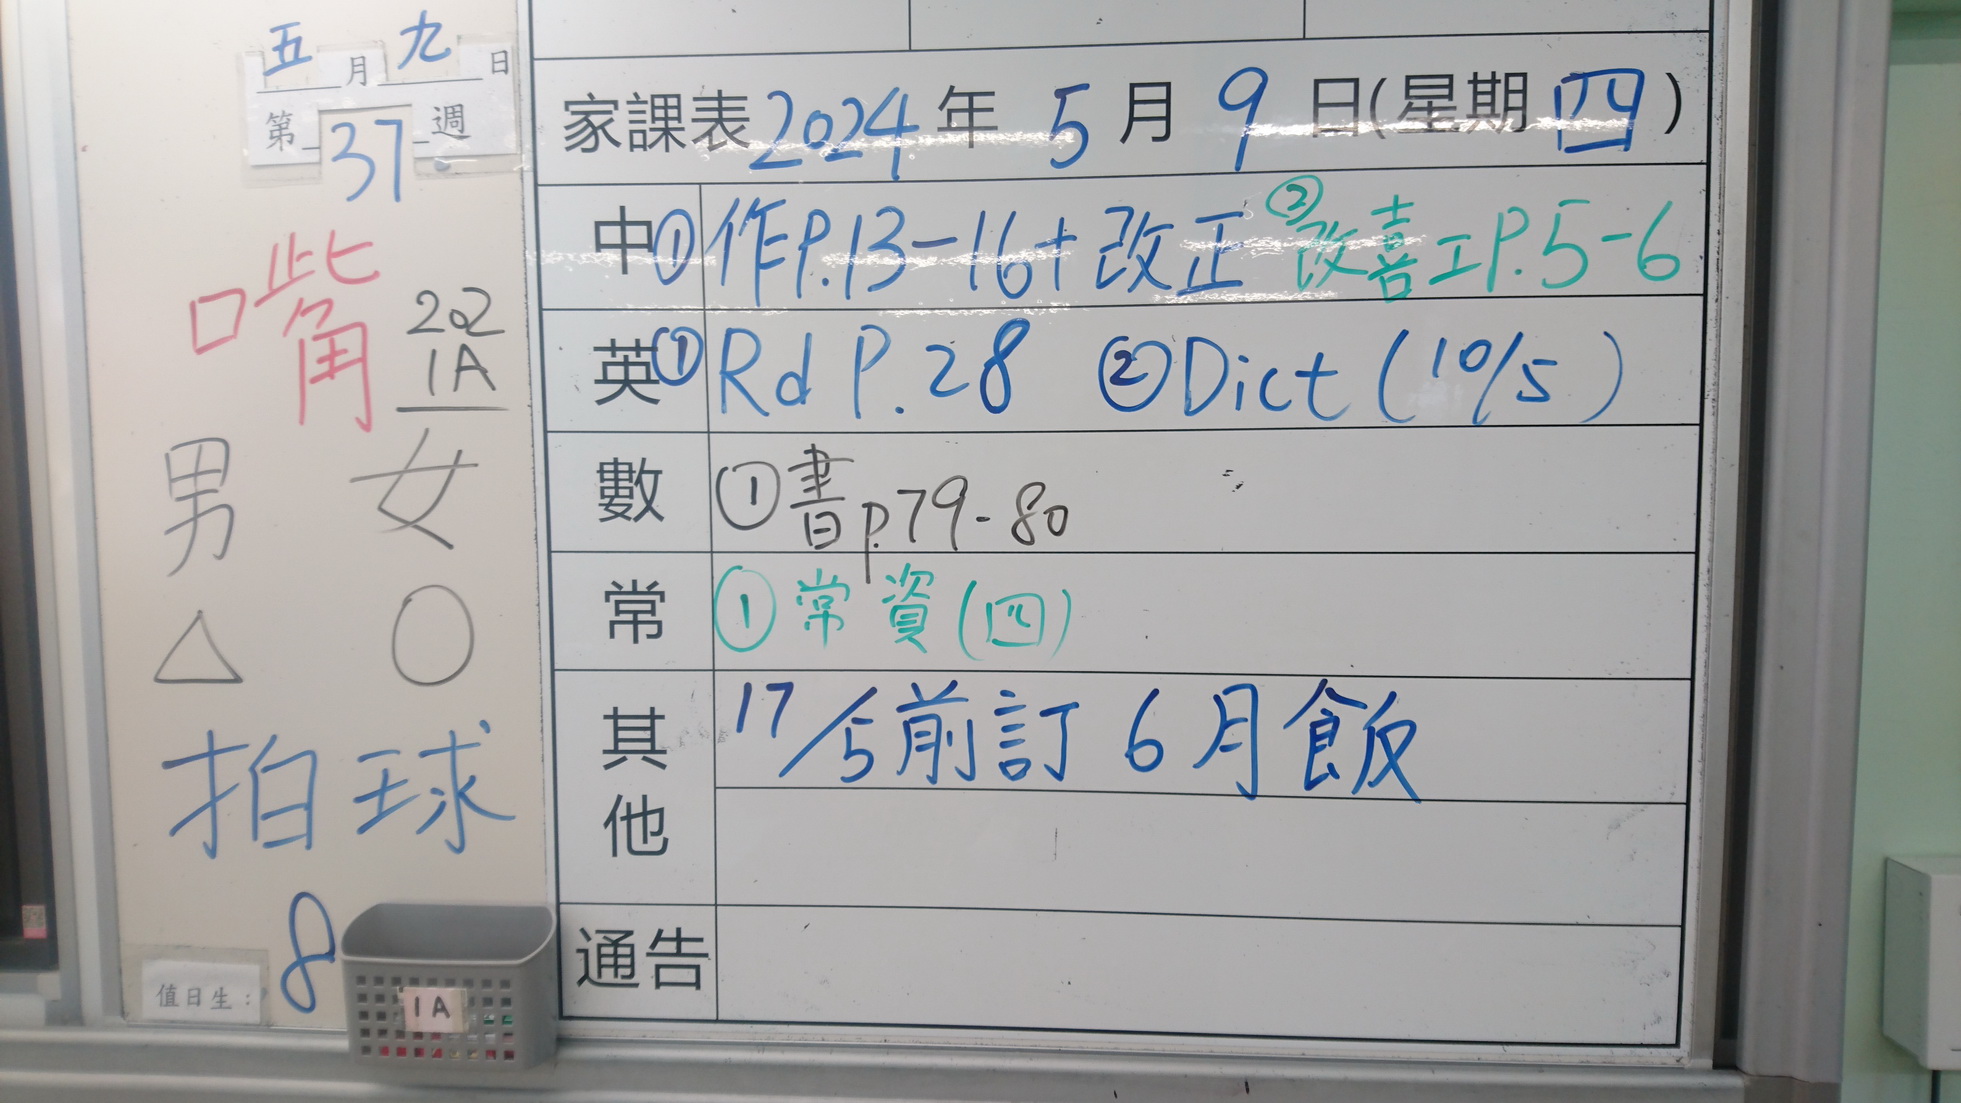 五月九日
第37週
嘴
202
1A
男 女
△ ○
拍球
值日生：8
1A
家課表2024年5月9日(星期四)
中①作P.13-16+改正 ②改善工P.5-6
英①Rd P.28 ②Dict (10/5)
數①書p.79-80
常①常資(四)
其他 17/5前訂6月飯
通告